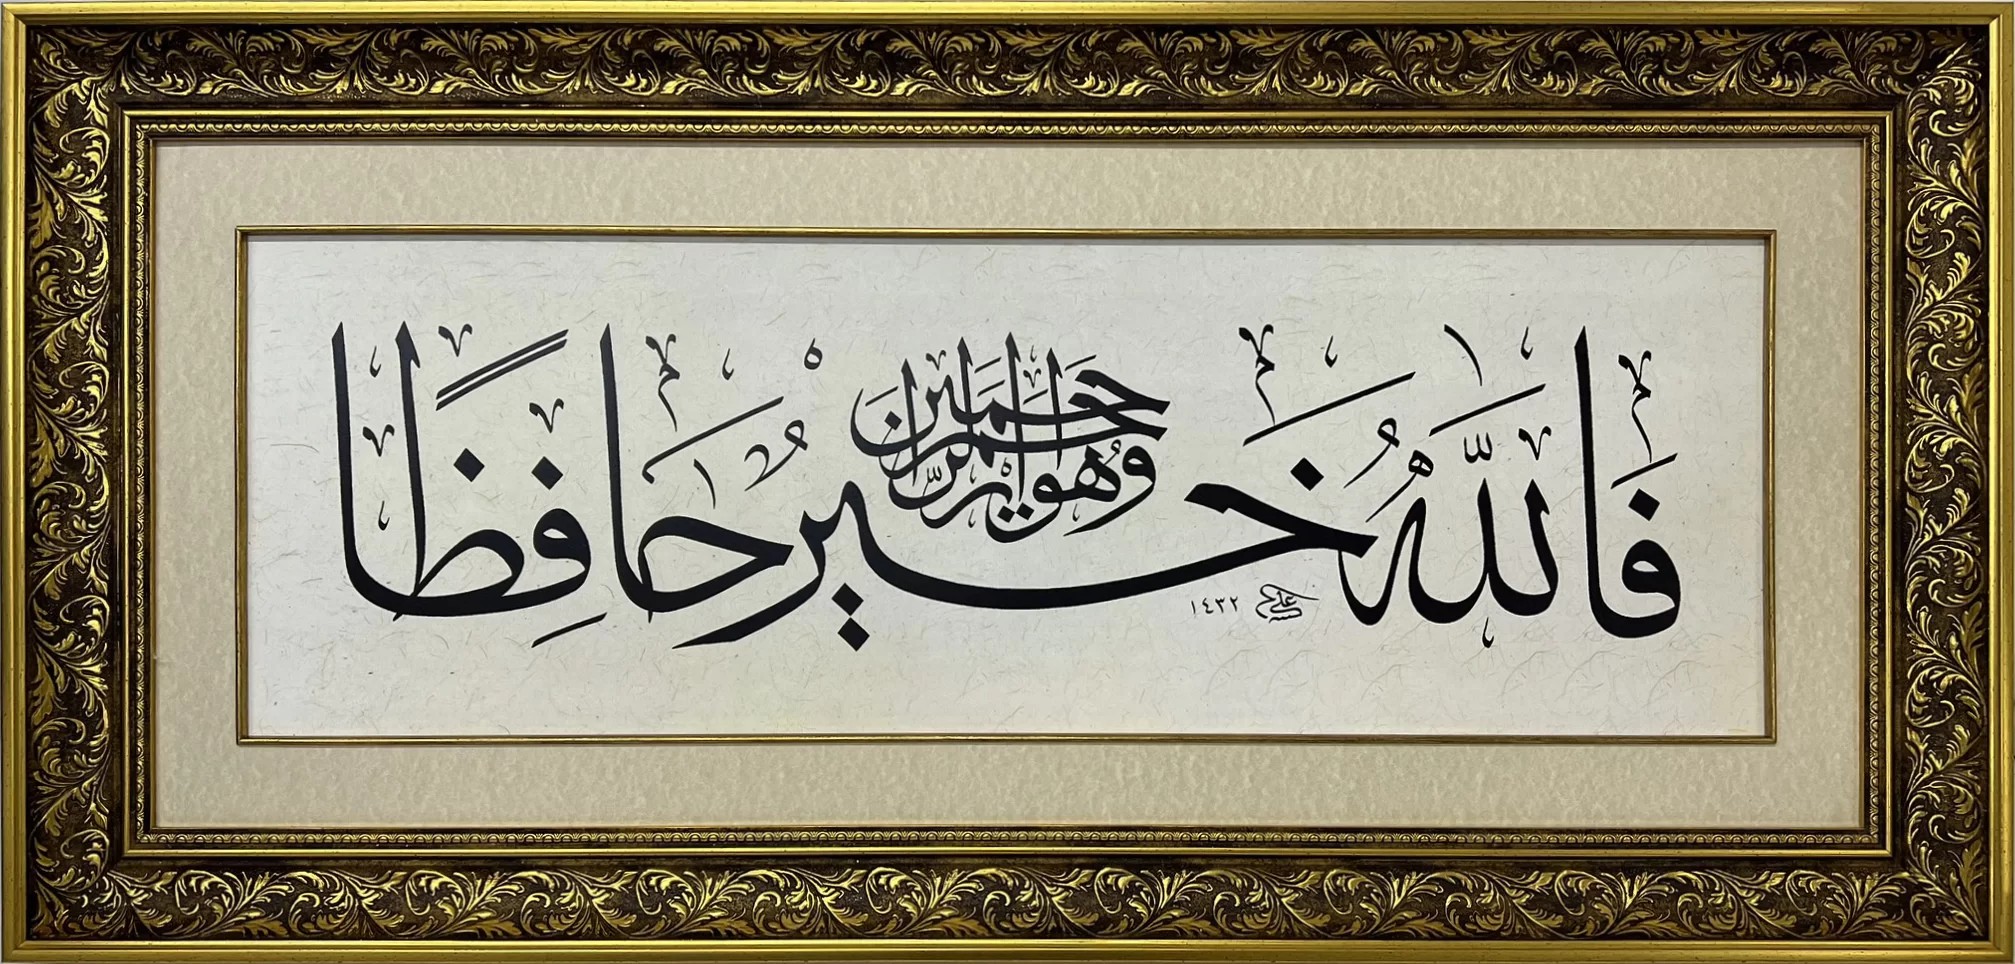 فَاللّٰهُ خَيْرٌ حَافِظًا
وَهُوَ أَرْحَمُ الرَّاحِمِينَ
علي
١٤٣٢